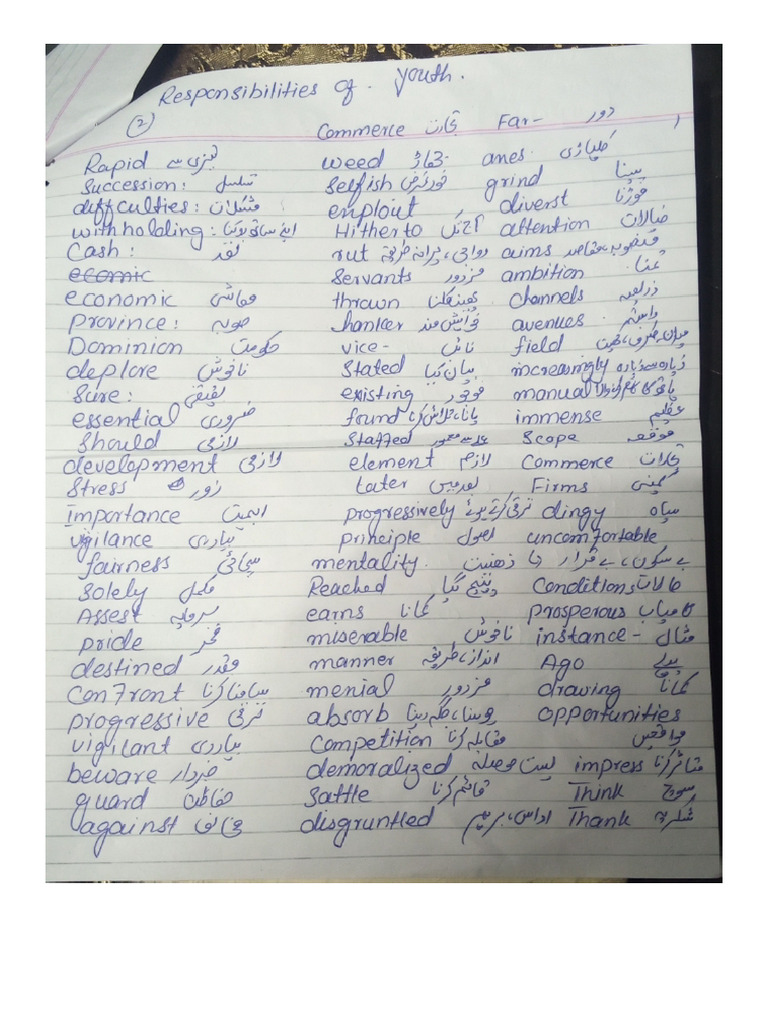 Responsibilities of Youth.
(2) Commerce تجارت Far- دور 1
Rapid تیزی سے weed جھاڑ anes کلہاڑی
Succession: تسلسل selfish خودغرض grind پیسنا
difficulties: مشکلات emplout diverst موڑنا
withholding: Hitherto آج تک attention خیالات
Cash: نقد rut رواجی، پرانہ طریقہ aims منصوبہ، مقاصد
ecomic servants مزدور ambition تمنا
economic معاشی thrown پھینکنا channels ذرائعہ
Province: صوبہ hanker خواہش مند avenues راستہ
Dominion حکومت vice- نائب field
deplore ناخوش Stated بیان کیا increasingly زیادہ سے زیادہ
Sure: یقینی existing موجود manual
essential ضروری found پانا، تلاش کرنا immense عظیم
Should لازمی Staffed عملہ سے معمور Scope موقعہ
development لازمی element لازم Commerce تجارت
Stress زور Later بعد میں Firms کمپنی
Importance اہمیت progressively ترقی کرتے ہوئے dingy سیاہ
vigilance بیداری principle اصول uncomfortable
fairness سچائی mentality ذہنیت بے سکون، بے قرار
Solely مکمل Reached پہنچ گیا Conditions حالات
Assest سرمایہ earns کمانا prosperous کامیاب
pride فخر miserable ناخوش instance- مثال
destined مقدر manner انداز، طریقہ Ago پہلے
Confront سامنا کرنا menial مزدور drawing کمانا
progressive ترقی absorb چوسنا، جگہ دینا opportunities
vigilant بیداری Competition مقابلہ کرنا مواقعیں
beware خبردار demoralized پست حوصلہ impress متاثر کرنا
guard حفاظت Sattle قائم کرنا Think سوچ
against مخالف disgruntled اداس، برہم Thank شکریہ